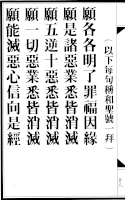 （以下每句稱和聖號一拜）
願各各明了罪福因緣
願是諸惡業悉皆消滅
願五逆十惡悉皆消滅
願一切惡業悉皆消滅
願能滅惡心信向是經
十八